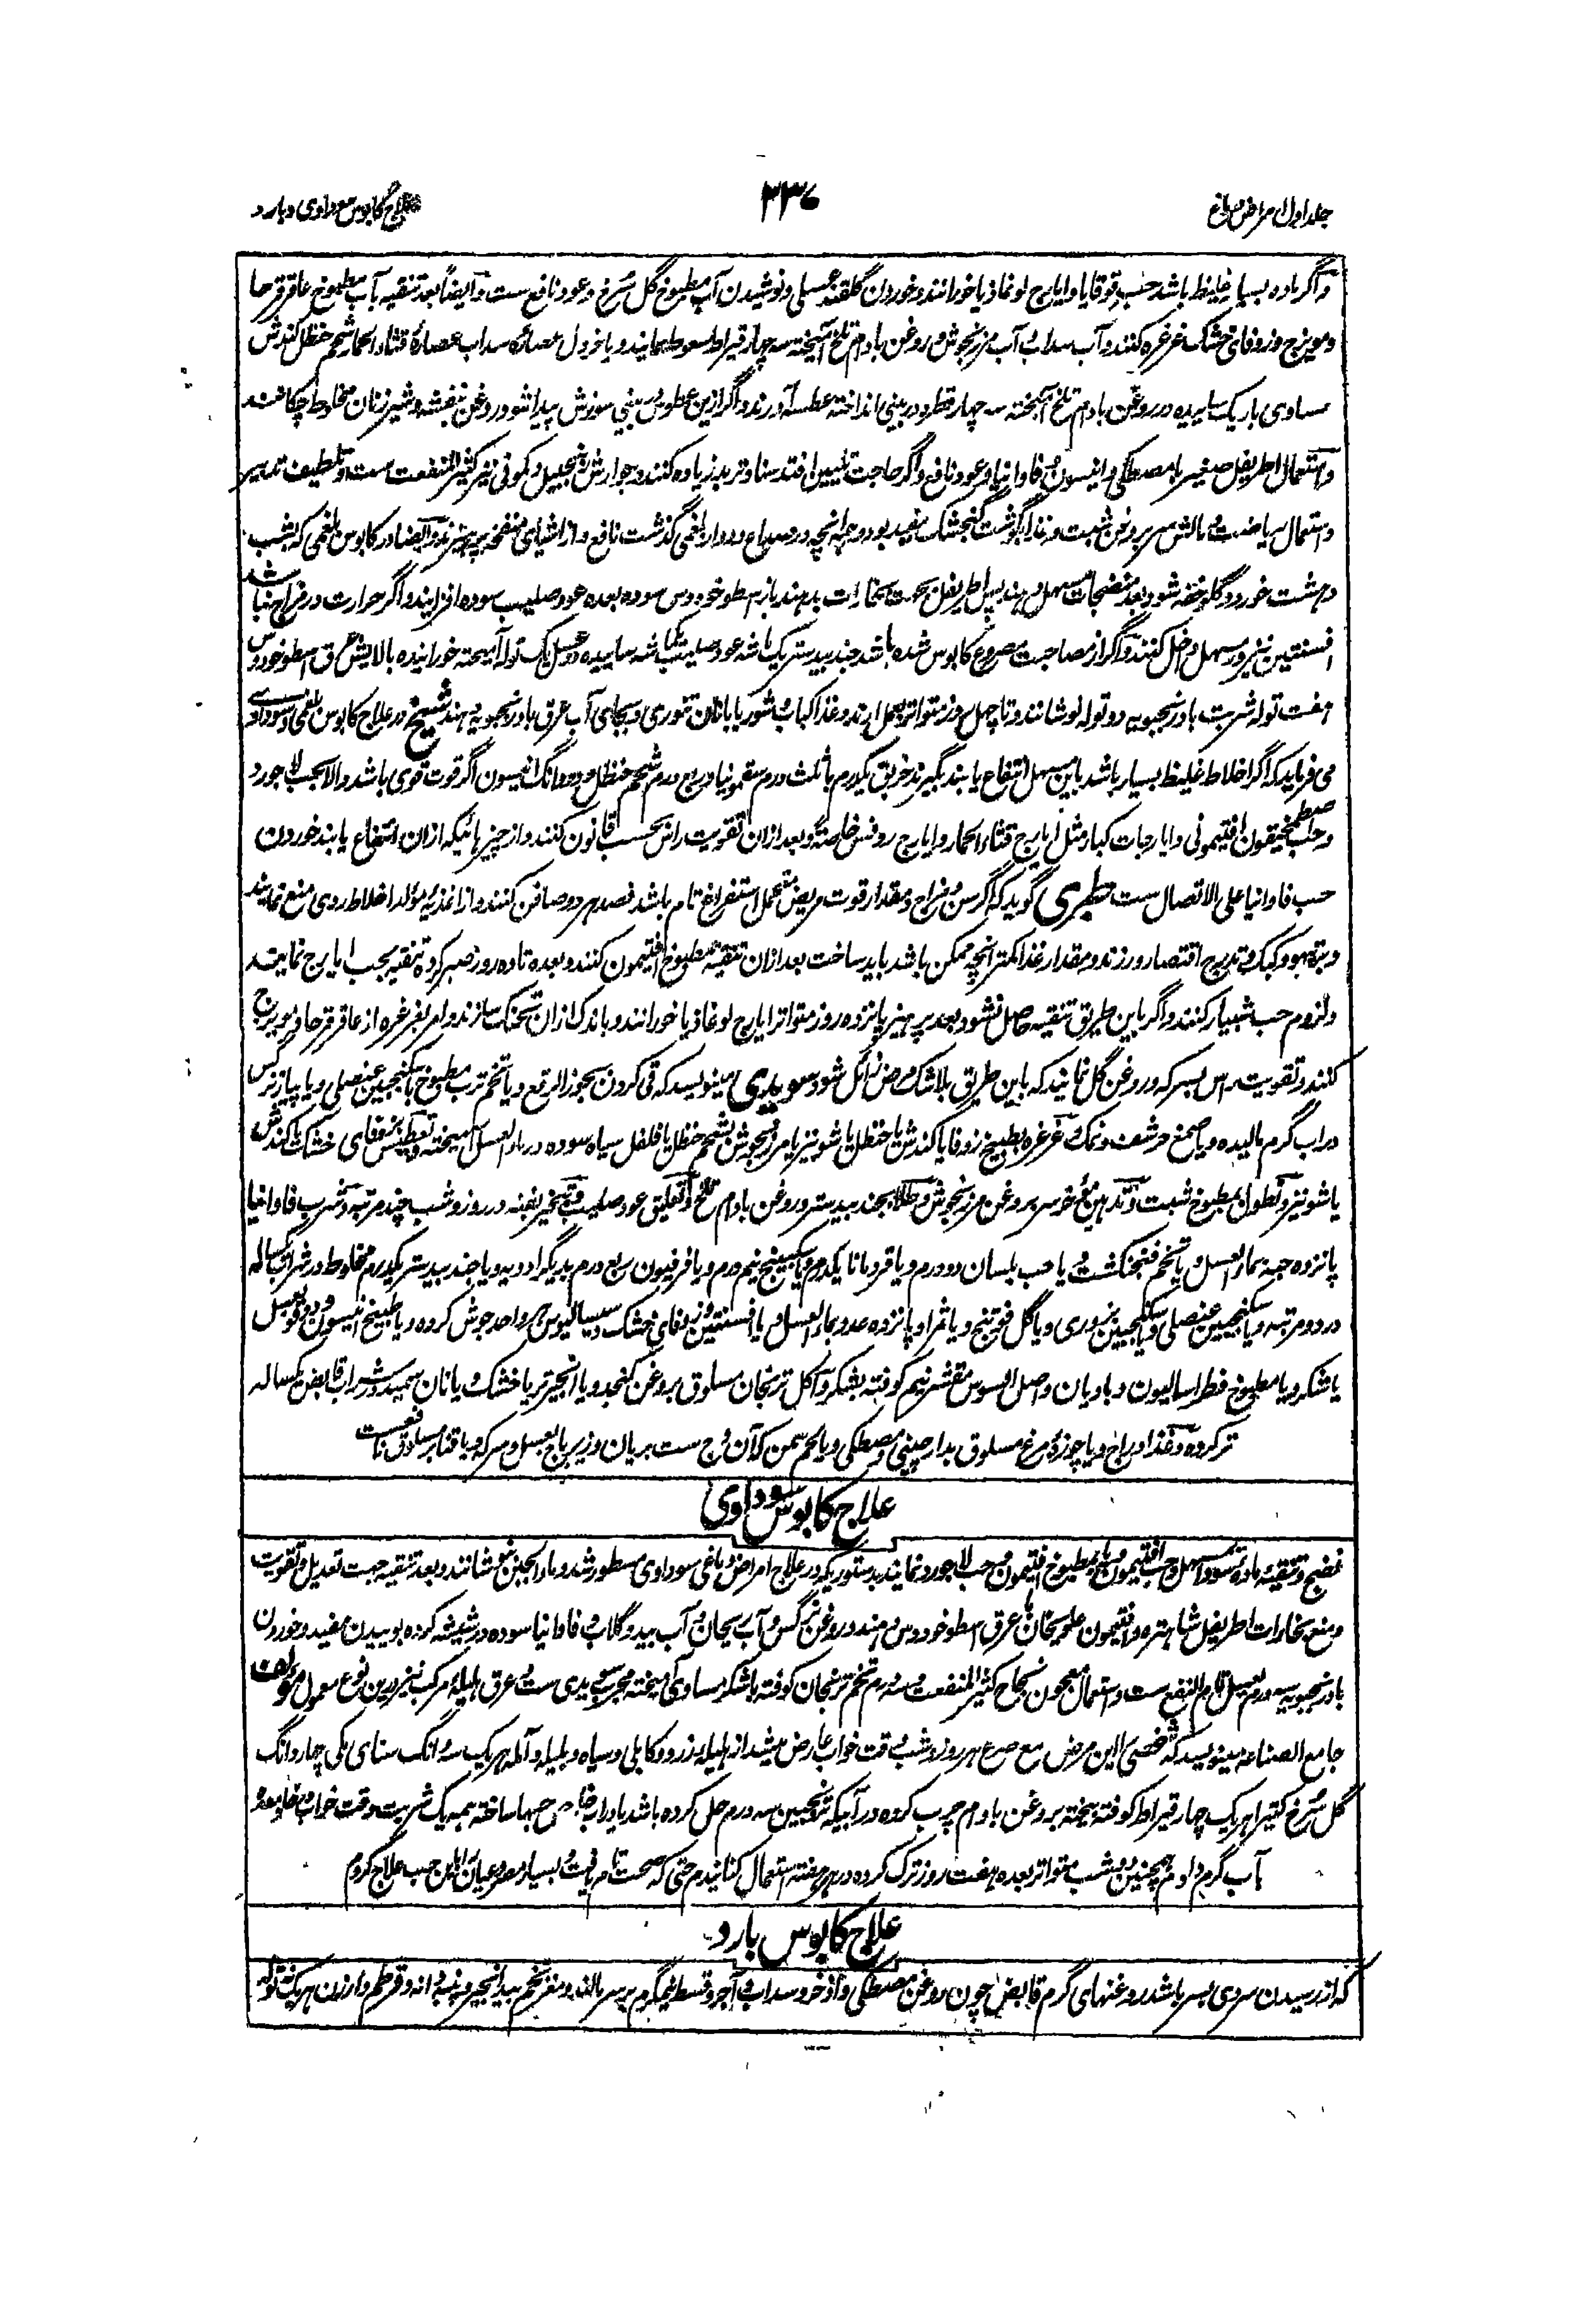 جلد اول امراض دماغ
۳۳۷
علاج کابوس سوداوی و بارد
و اگر ماده بسیار غلیظ باشد حب قوقایا و ایارج لوغاذیا خورانند و خوردن گلقند عسلی و نوشیدن آب مطبوخ گل سرخ و عود نافع ست و ایضاً بعد تنقیه بآب مطبوخ عاقرقرحا
و مویزج و زوفای خشک غرغره کنند و آب سداب و آب مرزنجوش و روغن بادام تلخ آمیخته سه چهار قیراط سعوط نمایند و یا خردل عصاره سداب عصاره قثاء الحمار شحم حنظل کندش
مساوی باریک ساییده در روغن بادام تلخ آمیخته سه چهار قطره در بینی انداخته عطسه آورند و اگر ازین عطوس در بینی سوزش پیدا شود روغن بنفشه و شیر زنان مخلوط چکانند
و استعمال اطریفل صغیر با مصطکی و انیسون و فاوانیا و عود نافع و اگر حاجت تلیین افتد سنا و تربد زیاده کنند و جوارش زنجبیل و کمونی نیز کثیر المنفعت ست و تلطیف تدبیر
و استعمال ریاضت و مالش سر بروغن شبت و غذا گوشت گنجشک مفید بود و هر انچه در صداع و دوار بلغمی گذشت نافع و از اشیای منفخه پرهیزند و ایضا در کابوس بلغمی که بشب
دهشت خورد و گلو خفه شود بعد منضجات مسهل دهند پس اطریفل بجهت بخارات بدهند باز اسطوخودوس سوده بعده عود صلیب سوده افزایند و اگر حرارت در مزاج نباشد
افسنتین نیز در مسهل داخل کنند و اگر از مصاحبت مصروع کابوس شده باشد جند بیدستر یک ماشه عود صلیب یک ماشه ساییده در عسل یک توله آمیخته خورانیده بالایش عرق اسطوخودوس
هفت توله شربت بادرنجبویه دو توله نوشانند و تا چهل روز متواتر بعمل آرند و غذا کباب و شوربا با نان تنوری و بجای آب عرق بادرنجبویه دهند شیخ در علاج کابوس بلغمی و سوداوی
می فرماید که اگر اخلاط غلیظ بسیار باشد باین مسهل انتفاع یابند بگیرند خربق یکدرم با ثلث درم سقمونیا و ربع درم شحم حنظل و دو دانگ انیسون اگر قوت قوی باشد و الا بحب لاجورد
و حب اصطمخیقون افتیمونی و ایارجات کبار مثل ایارج قثاء الحمار و ایارج روفس خاصةً و بعد ازان تقویت راس بحسب قانون کنند و از چیزهائیکه ازان انتفاع یابند خوردن
حب فاوانیا علی الاتصال ست طبری گوید که اگر سن و مزاج و مقدار قوت مریض متحمل استفراغ تام باشد فصد هر دو صافن کنند و از اغذیه مولد اخلاط ردی منع نمایند
و بتیهو و کبک و تدرج اقتصار ورزند و مقدار غذا کمتر انچه ممکن باشد باید ساخت بعد ازان تنقیه بمطبوخ افتیمون کنند و بعده تا ده روز صبر کرده تنقیه بحب ایارج نمایند
و لزوم حب شبیار کنند و اگر باین طریق تنقیه حاصل نشود بعد پرهیز پانزده روز متواتر ایارج لوغاذیا خورانند و باندک ازان تحنک سازند و امر بغرغره از عاقرقرحا و مویزج
کنند و تقویت راس بسرکه و روغن گل نمایند که باین طریق بلاشک مرض زائل شود سویدی مینویسد که قی کردن بجوز الرقع و یا تخم ترب مطبوخ با سکنجبین عنصلی و یا پیاز نرگس
در آب گرم مالیده و یا صمغ حرشف و نمک و غرغره بطبیخ زوفا یا کندش یا حنظل یا شونیز یا مرزنجوش و شحم حنظل یا فلفل سیاه سوده در ماء العسل آمیخته و تعطیس بزوفای خشک یا کندش
یا شونیز و نطول بمطبوخ شبت و تدهین مؤخر سر بروغن مرزنجوش و طلا بجند بیدستر و روغن بادام تلخ و تعلیق عود صلیب و تبخیر بفنه در روز و شب چند مرتبه و شرب فاوانیا
پانزده حبه بماء العسل و یا تخم فنجنکشت و یا حب بلسان دو درم و یا قردمانا یکدرم و یا سکبینج نیم درم و یا فرفیون ربع درم بدیگر ادویه و یا جند بیدستر یکدرم مخلوط در شراب یکساله
در دو مرتبه و یا سکنجبین عنصلی و یا سکنجبین بزوری و یا گل فوتنج و یا ثمر او پانزده عدد بماء العسل و یا افسنتین و زوفای خشک و سیسالیوس هر واحد جوش کرده و یا طبیخ انیسون و دوقو بعسل
یا شکر و یا مطبوخ فطراسالیون و بادیان و اصل السوس مقشر نیم کوفته بشکر و اکل ترنجان مسلوق بروغن کنجد و یا انجیر تر یا خشک و یا نان سمید در شراب قابض یکساله
تر کرده و غذا دراج و یا چوزه مرغ مسلوق بدارچینی و مصطکی و یا لحم سمن که آن وج ست بریان و زیرباج بعسل و سرکه و یا قنابر مسلوق نافعست
علاج کابوس سوداوی
نضج و تنقیه ماده سودا بمسهل و حب افتیمون و یا بمطبوخ افتیمون و حب لاجورد نمایند بدستوریکه در علاج امراض دماغی سوداوی مسطور شد و ماء الجبن بنوشانند و بعد تنقیه جهت تعدیل و تقویت
و منع بخارات اطریفل شاهتره و افتیمون علویخان با عرق اسطوخودوس دهند و روغن نرگس و آب ریحان و آب بید و گلاب و فاوانیا سوده در شیشه کرده بوییدن مفید و خوردن
بادرنجبویه سه درم بعسل تام النفع ست و استعمال معجون نجاح کثیر المنفعت و سه درم تخم ترنجان کوفته با شکر مساوی آمیخته مجرب سویدی ست و عرق هلیله مرکب نیز درین نوع معمول مؤلف
جامع الصناعه مینویسد که شخصی را این مرض مع صرع هر روز و شب وقت خواب عارض میشد از هلیله زرد و کابلی و سیاه و بلیله و آمله هر یک سه دانگ سنای مکی چهار دانگ
گل سرخ کتیرا هر یک چهار قیراط کوفته بیخته بروغن بادام چرب کرده در آبیکه ترنجبین سه درم حل کرده باشد یا در آب خالص حبها ساخته همه یک شربت وقت خواب و خلو معده
بآب گرم دادم همچنین دو شب متواتر بعده هفت روز ترک کرده در هر هفته استعمال کنانیدم حتی که صحت تام یافت و بسیار مصروعیان را باین حب علاج کردم
علاج کابوس بارد
که از رسیدن سردی بسر باشد روغنهای گرم قابض چون روغن مصطکی و اذخر و سداب و آجر و قسط نیمگرم بر سر مالند و مغز تخم بیدانجیر و پنبه دانه و قرطم و ارزن هر یک نه توله